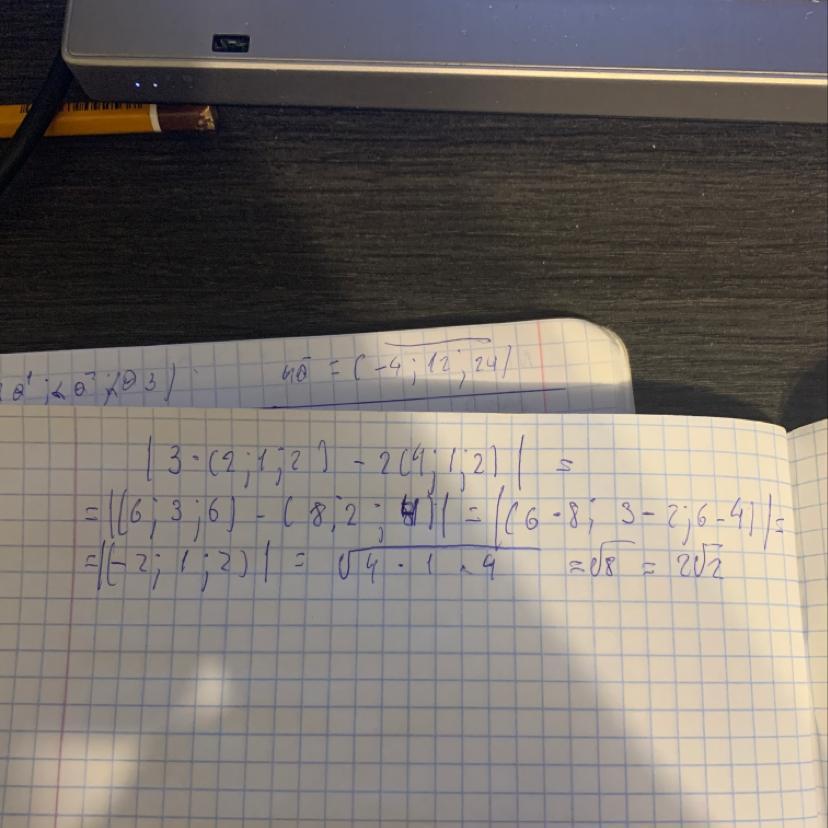 4ā = (-4; 12; 24)
| 3·(2;1;2) - 2(4;1;2) | =
= |(6;3;6) - (8;2;4)| = |(6-8; 3-2; 6-4)| =
= |(-2; 1; 2)| = √4·1·4 = √8 = 2√2